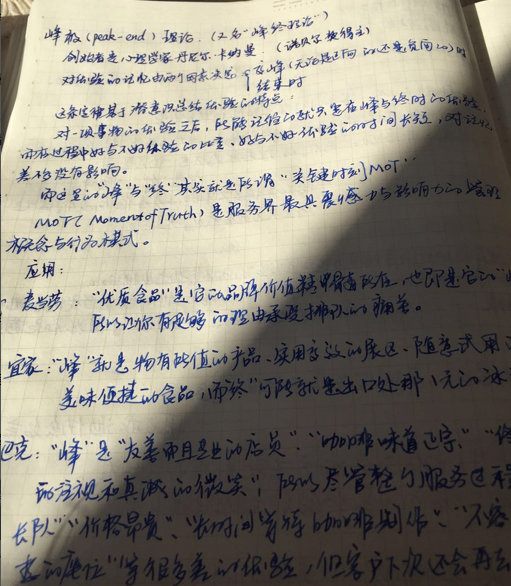 峰极(peak-end)理论.(又名“峰终理论”)
创始者是心理学家丹尼尔·卡纳曼.(诺贝尔奖得主)
对体验的记忆由两个因素决定 高峰(无论是正向的还是负向的)时
结束时
这条定律基于潜意识总结体验的特点:
对一项事物的体验之后,所能记住的就只是在峰与终时的体验,
而在过程中好与不好体验的比重、好与不好体验的时间长短,对记忆
差不多没有影响。
而这里的“峰”与“终”其实就是所谓“关键时刻MOT”.
MOT(Moment of Truth)是服务界最具震撼力与影响力的管理
概念与行为模式。
应用:
麦当劳:“优质食品”是它的品牌价值精髓所在,也即是它的“
所以让你有足够的理由承受排队的痛苦。
宜家:“峰”就是物有所值的产品、实用高效的展区、随意试用
美味便捷的食品,而“终”可能就是出口处那1元的冰
巴克:“峰”是“友善而且专业的店员”、“咖啡味道正宗”、“
的注视和真诚的微笑”,所以尽管整个服务过程
长队”“价格昂贵”、“长时间等待咖啡制作”、“不容
的座位”等很多差的体验,但客户下次还会再去